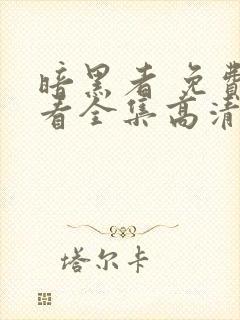 暗黑者免费
看全集高清
塔尔卡